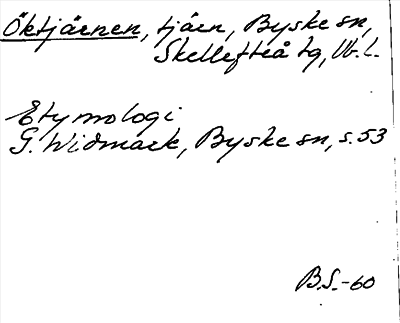 Öktjärnen, tjärn, Byske sn,
Skellefteå tg, Vb. l.
Etymologi
G. Widmark, Byske sn, s. 53
B.S.-60